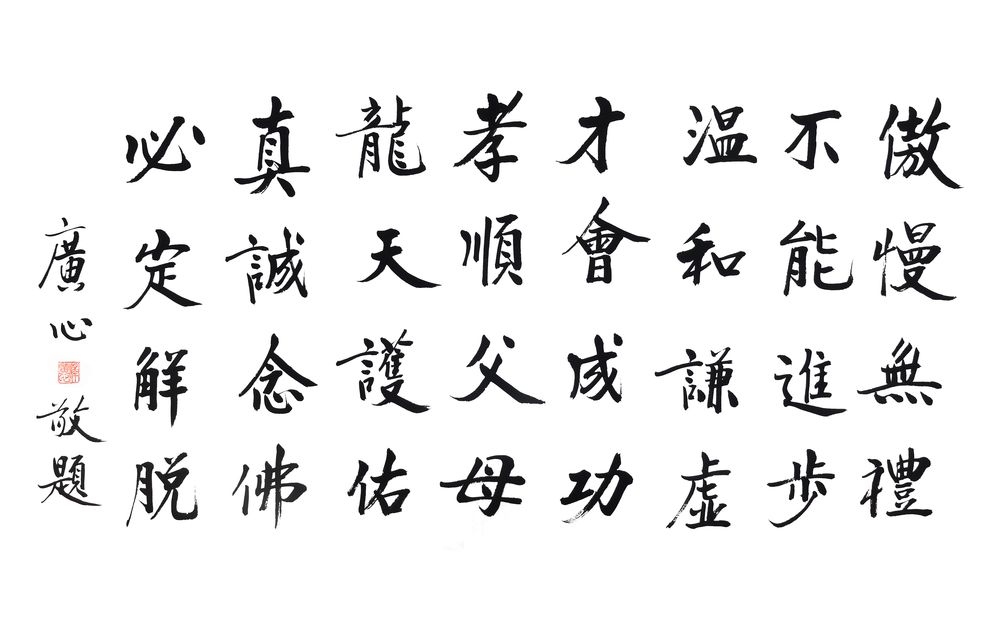 傲慢無禮
不能進步
溫和謙虛
才會成功
孝順父母
龍天護佑
真誠念佛
必定解脫
廣心敬題